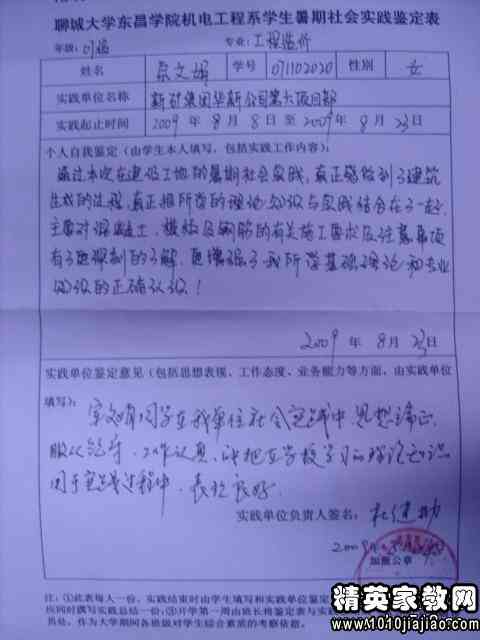 聊城大学东昌学院机电工程系学生暑期社会实践鉴定表
年级: 专业: 工程造价
姓名 文娟 学号 071102020 性别 女
实践单位名称 新矿集团华新公司第六项目部
实践起止时间 2009年 8月 8日 至 2009年 8月 23日
个人自我鉴定(由学生本人填写,包括实践工作内容):
通过本次在建设工地的暑期社会实践,真正感做到了建筑
生成的过程,真正把所学的理论知识与实践结合在了一起,
主要对混凝土、模板及钢筋的有关施工要求及注意事项
有了更深刻的了解,更增强了我所学基础理论和专业
知识的正确认识!
2009 年 8月 23日
实践单位鉴定意见(包括思想表现、工作态度、业务能力等方面,由实践单位
填写):
文娟同学在我单位社会实践中,思想端正,
服从领导,工作认真,能把在学校学习的理论知识
用于实践过程中,表现良好。
实践单位负责人签名:
2009年
加盖公章
注:①此表每人一份,实践结束时由学生填写和实践单位鉴定
应同时撰写实践总结一份;③开学第一周由班长将鉴定表与实践
员处,作为大学期间各班级对学生综合素质的考察依据。
精英家教网
www.1010jiajiao.com